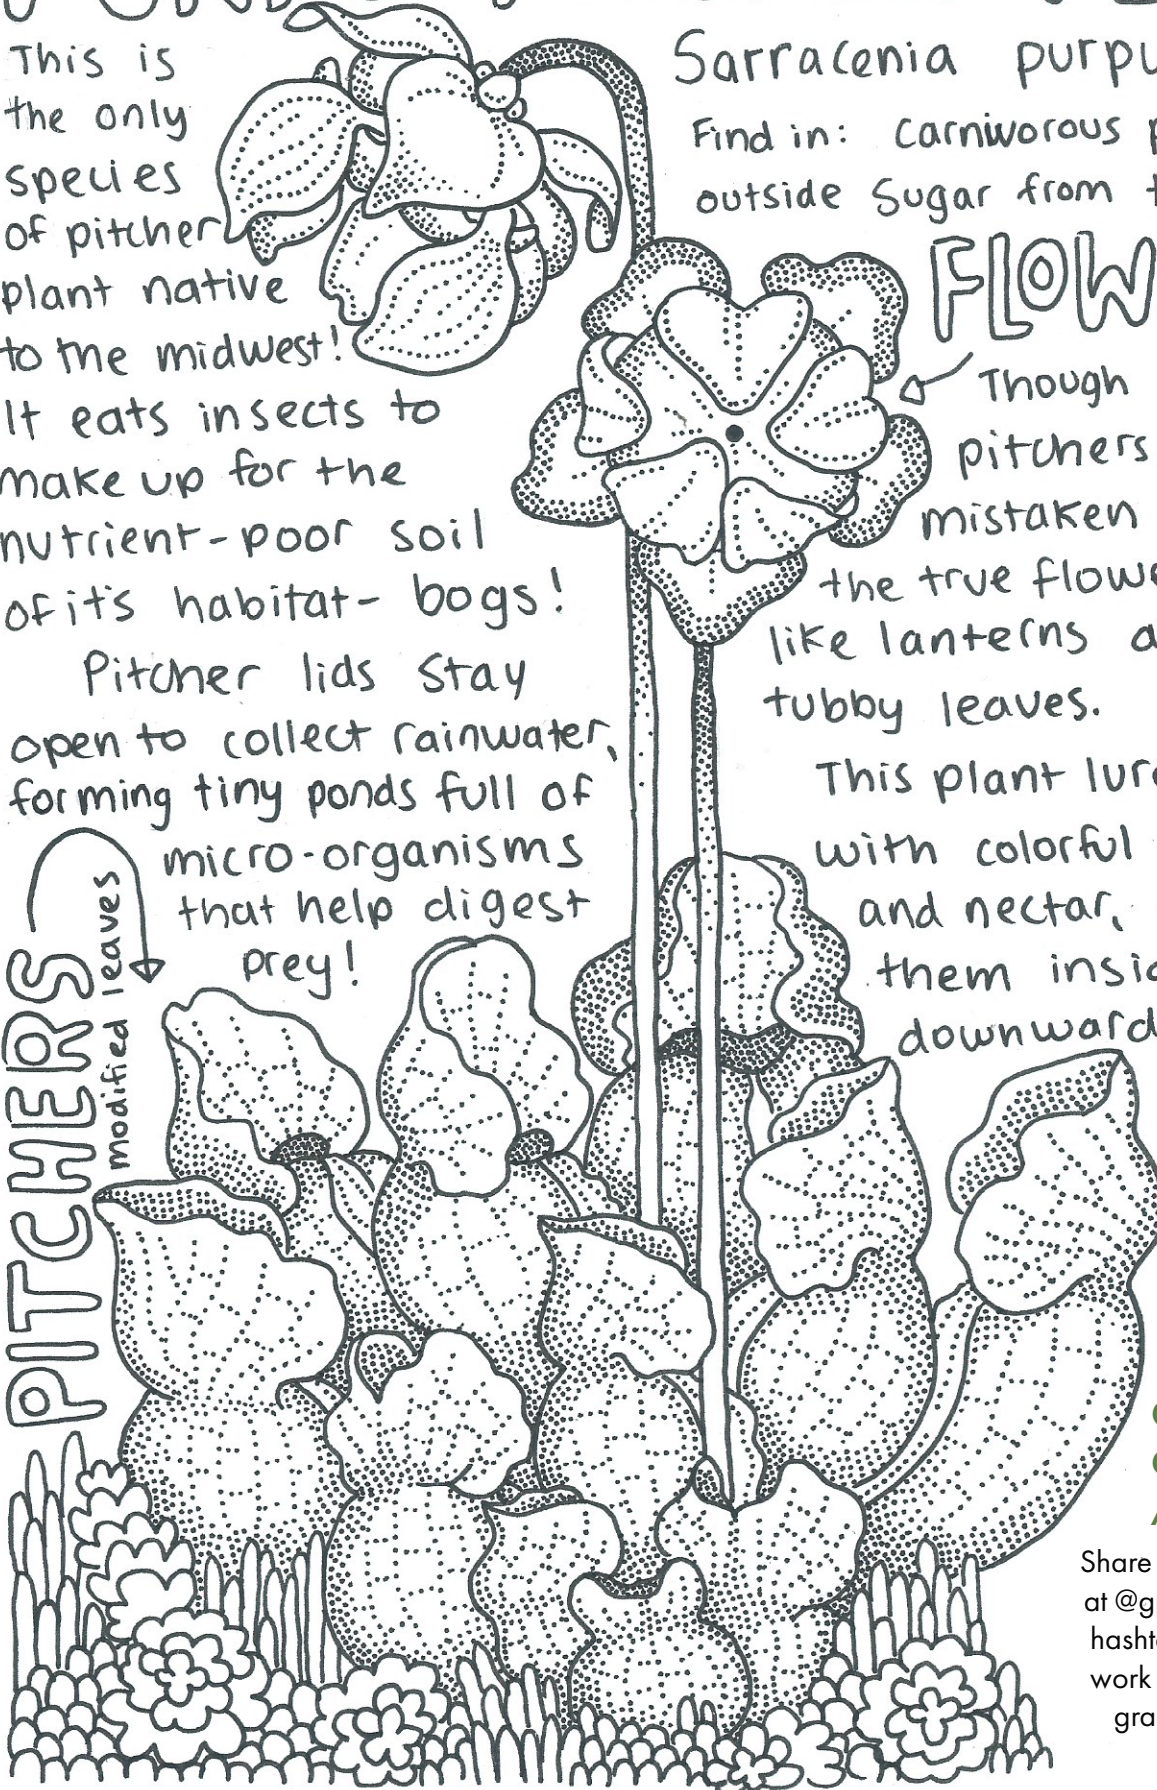 This is
the only
species
of pitcher
plant native
to the midwest!
It eats insects to
make up for the
nutrient-poor soil
of it's habitat- bogs!
Pitcher lids stay
open to collect rainwater,
forming tiny ponds full of
micro-organisms
that help digest
prey!
PITCHERS
modified leaves
Sarracenia purpu
Find in: Carniworous p
outside Sugar from t
FLOW
Though
pitchers
mistaken
the true flowe
like lanterns a
tubby leaves.
This plant lure
with colorful
and nectar,
them insid
downward
Share
at @g
hasht
work
gra